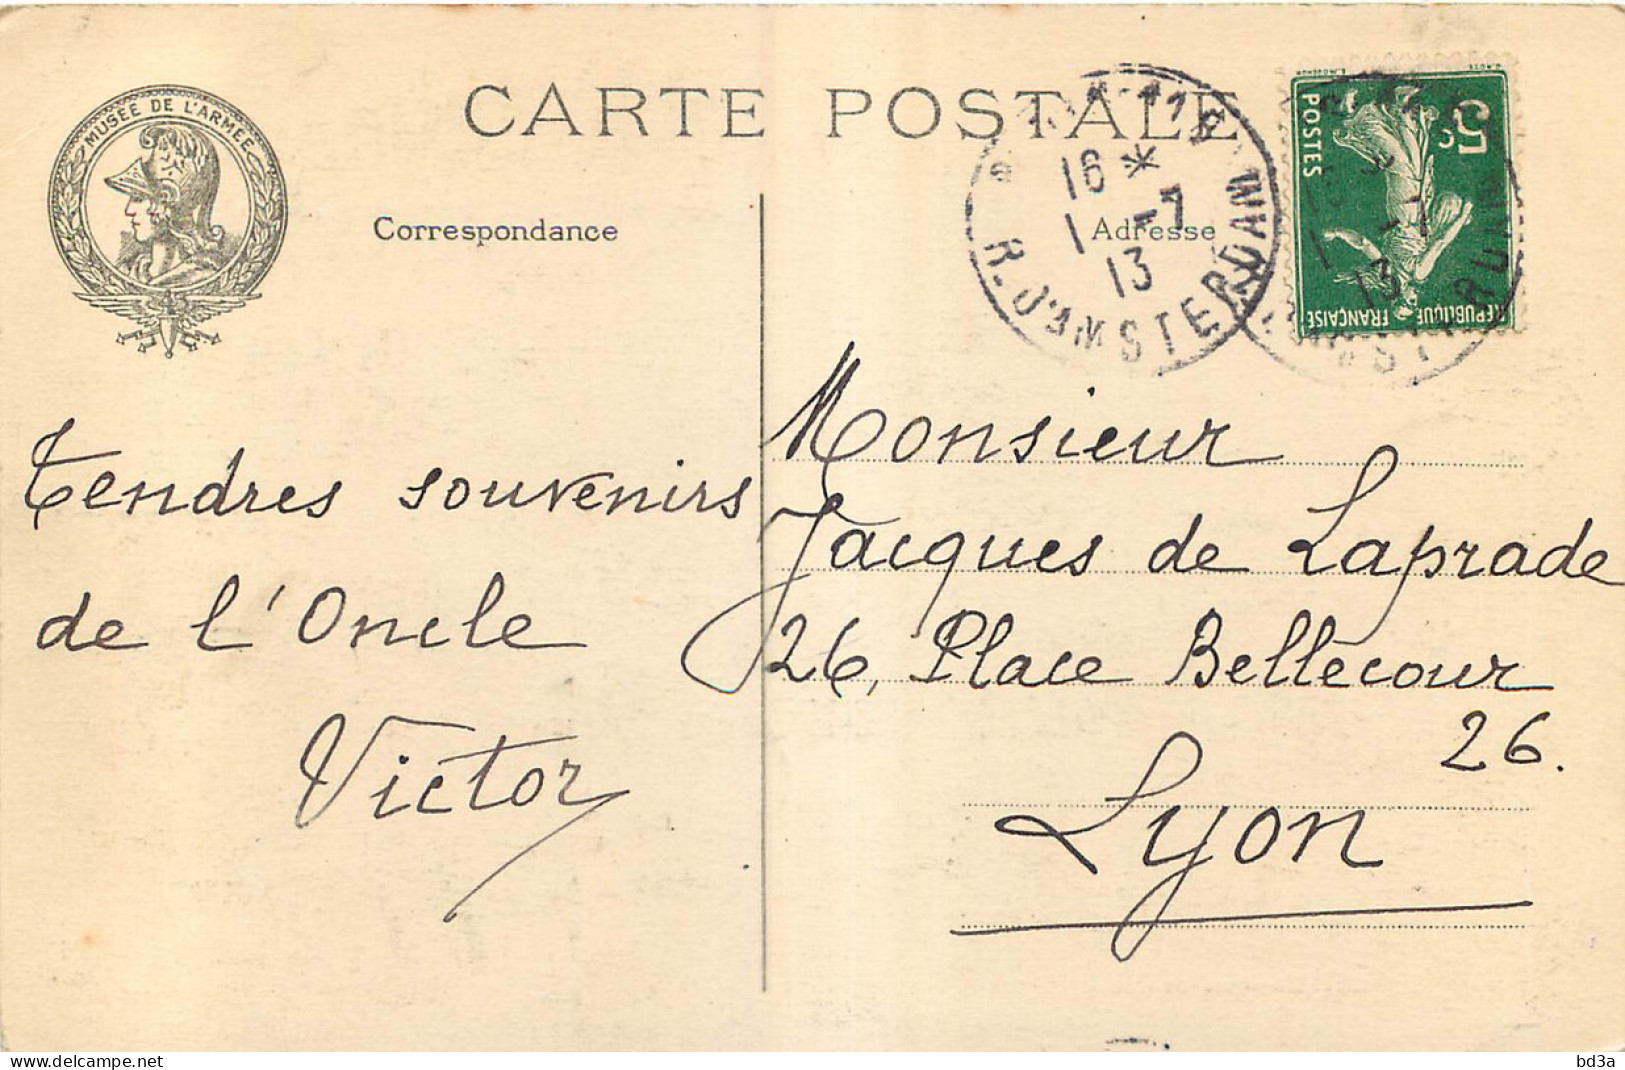 CARTE POSTALE
MUSÉE DE L'ARMÉE
Correspondance
Adresse
16 * 1 -7 13
R. D'AMSTERDAM
5c
POSTES
RÉPUBLIQUE FRANÇAISE
Tendres souvenirs
de l'Oncle
Victor
Monsieur
Jacques de Laprade
26, Place Bellecour
26.
Lyon
bd3a